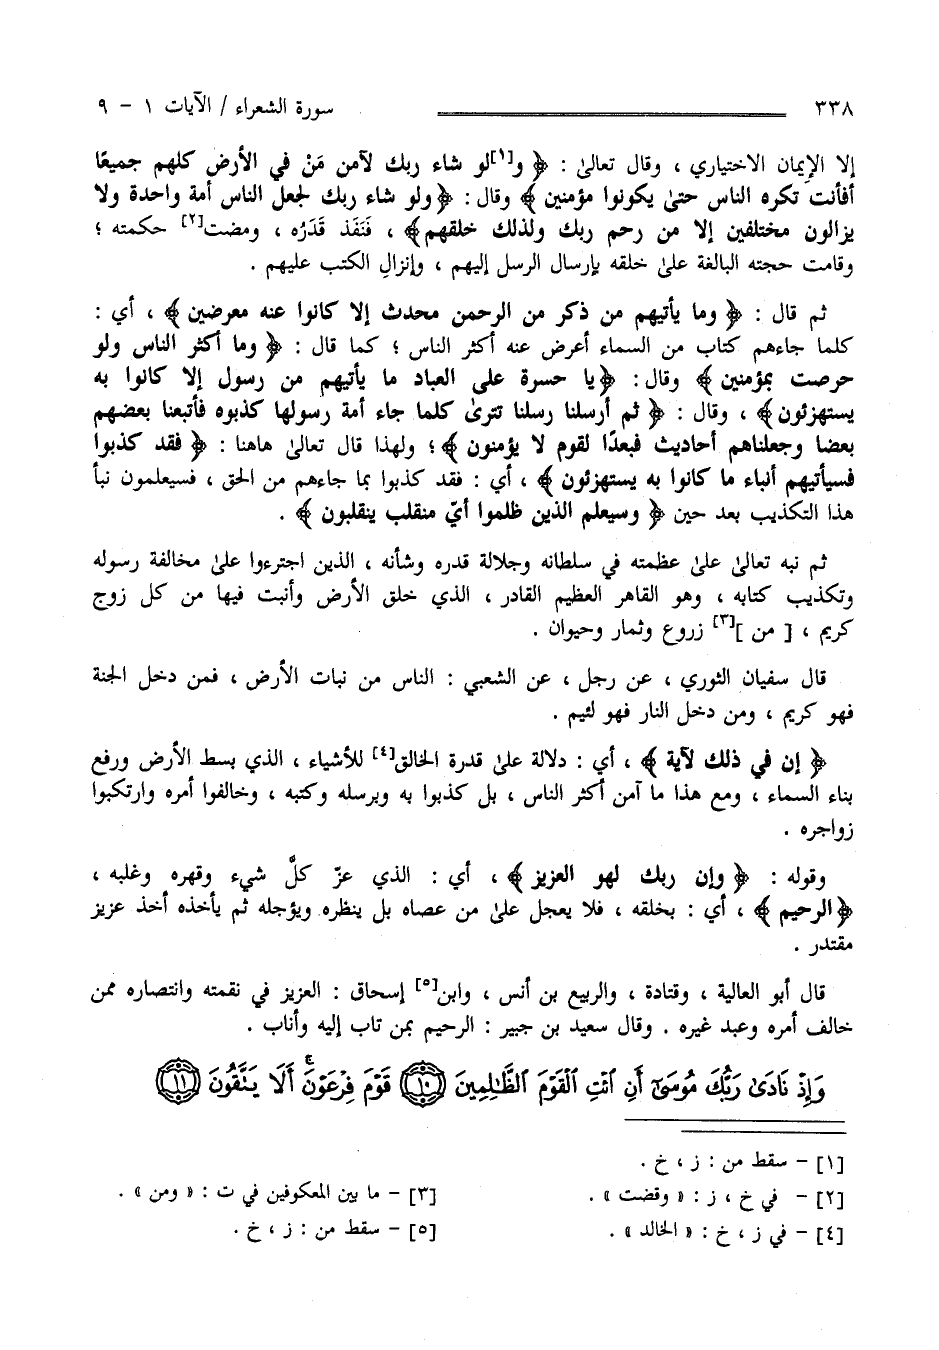 ٣٣٨ سورة الشعراء / الآيات ١ - ٩
إلا الإيمان الاختياري ، وقال تعالىٰ : ﴿ و[١]لو شاء ربك لآمن مَنْ في الأرض كلهم جميعًا
أفأنت تكره الناس حتىٰ يكونوا مؤمنين ﴾ وقال : ﴿ولو شاء ربك لجعل الناس أمة واحدة ولا
يزالون مختلفين إلا من رحم ربك ولذلك خلقهم﴾ ، فَنَفَذ قَدَرُه ، ومضت[٢] حكمته ؛
وقامت حجته البالغة علىٰ خلقه بإرسال الرسل إليهم ، وإنزالِ الكتب عليهم .
ثم قال : ﴿ وما يأتيهم من ذكر من الرحمن محدث إلا كانوا عنه معرضين ﴾ ، أي :
كلما جاءهم كتاب من السماء أعرض عنه أكثر الناس ؛ كما قال : ﴿ وما أكثر الناس ولو
حرصت بمؤمنين ﴾ وقال : ﴿يا حسرة على العباد ما يأتيهم من رسول إلا كانوا به
يستهزئون﴾ ، وقال : ﴿ ثم أرسلنا رسلنا تترىٰ كلما جاء أمة رسولها كذبوه فأتبعنا بعضهم
بعضا وجعلناهم أحاديث فبعدًا لقوم لا يؤمنون ﴾ ؛ ولهذا قال تعالىٰ هاهنا : ﴿ فقد كذبوا
فسيأتيهم أنباء ما كانوا به يستهزئون ﴾ ، أي : فقد كذبوا بما جاءهم من الحق ، فسيعلمون نبأ
هذا التكذيب بعد حين ﴿ وسيعلم الذين ظلموا أيّ منقلب ينقلبون ﴾ .
ثم نبه تعالىٰ علىٰ عظمته في سلطانه وجلالة قدره وشأنه ، الذين اجترءوا علىٰ مخالفة رسوله
وتكذيب كتابه ، وهو القاهر العظيم القادر ، الذي خلق الأرض وأنبت فيها من كل زوج
كريم ، [ من ][٣] زروع وثمار وحيوان .
قال سفيان الثوري ، عن رجل ، عن الشعبي : الناس من نبات الأرض ، فمن دخل الجنة
فهو كريم ، ومن دخل النار فهو لئيم .
﴿ إن في ذلك لآية ﴾ ، أي : دلالة علىٰ قدرة الخالق[٤] للأشياء ، الذي بسط الأرض ورفع
بناء السماء ، ومع هذا ما آمن أكثر الناس ، بل كذبوا به وبرسله وكتبه ، وخالفوا أمره وارتكبوا
زواجره .
وقوله : ﴿ وإن ربك لهو العزيز ﴾ ، أي : الذي عزّ كلَّ شيء وقهره وغلبه ،
﴿الرحيم ﴾ ، أي : بخلقه ، فلا يعجل علىٰ من عصاه بل ينظره ويؤجله ثم يأخذه أخذ عزيز
مقتدر .
قال أبو العالية ، وقتادة ، والربيع بن أنس ، وابن[٥] إسحاق : العزيز في نقمته وانتصاره ممن
خالف أمره وعبد غيره . وقال سعيد بن جبير : الرحيم بمن تاب إليه وأناب .
وَإِذْ نَادَىٰ رَبُّكَ مُوسَىٰٓ أَنِ ٱئْتِ ٱلْقَوْمَ ٱلظَّٰلِمِينَ ۝١٠ قَوْمَ فِرْعَوْنَ ۚ أَلَا يَتَّقُونَ ۝١١
[١] - سقط من : ز ، خ .
[٢] - في خ ، ز : « وقضت » . [٣] - ما بين المعكوفين في ت : « ومن » .
[٤] - في ز ، خ : « الخالد » . [٥] - سقط من : ز ، خ .